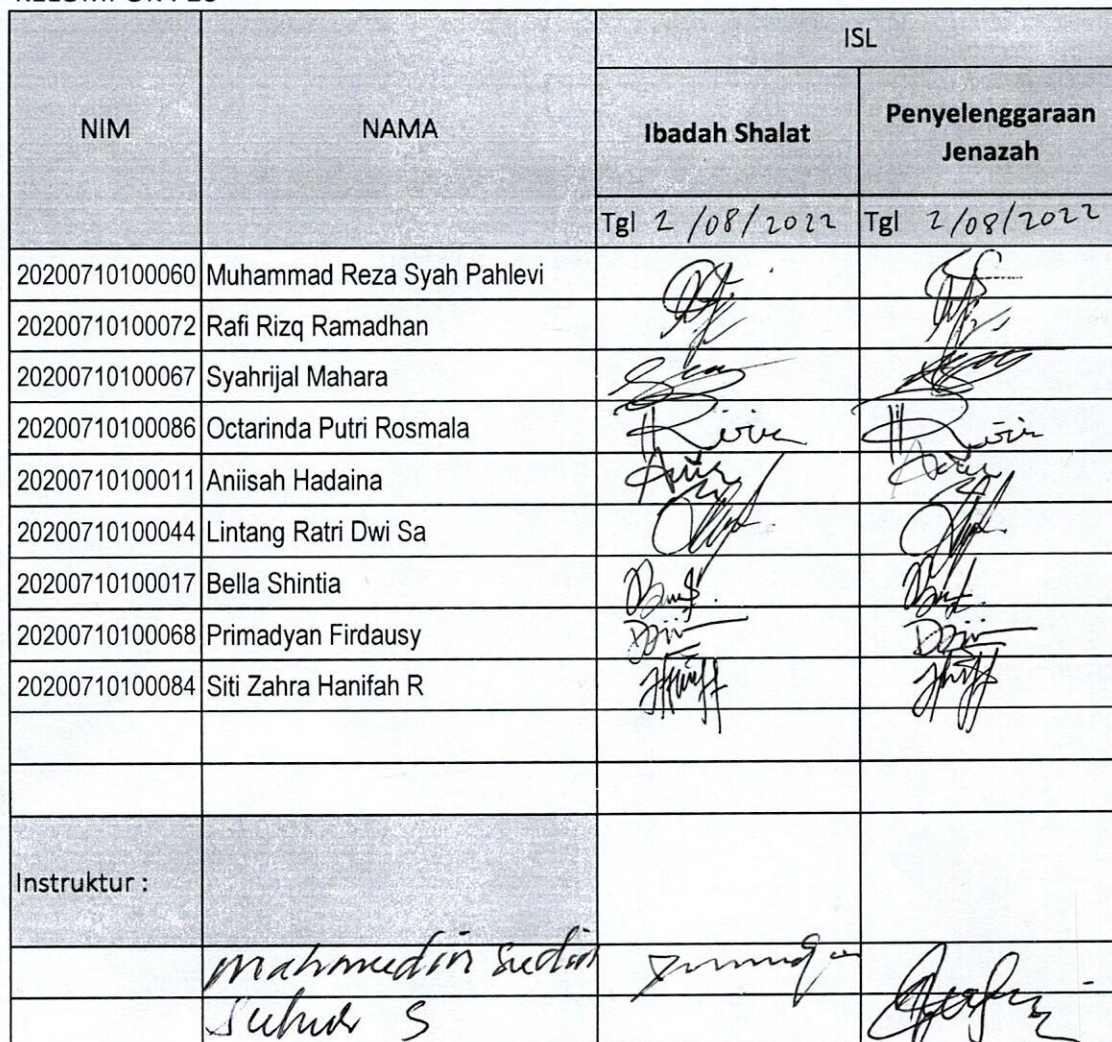 ISL
NIM NAMA Ibadah Shalat Penyelenggaraan
Jenazah
Tgl 2/08/2022 Tgl 2/08/2022
20200710100060 Muhammad Reza Syah Pahlevi
20200710100072 Rafi Rizq Ramadhan
20200710100067 Syahrijal Mahara
20200710100086 Octarinda Putri Rosmala
20200710100011 Aniisah Hadaina
20200710100044 Lintang Ratri Dwi Sa
20200710100017 Bella Shintia
20200710100068 Primadyan Firdausy
20200710100084 Siti Zahra Hanifah R
Instruktur :
Mahmudin Sudin
S